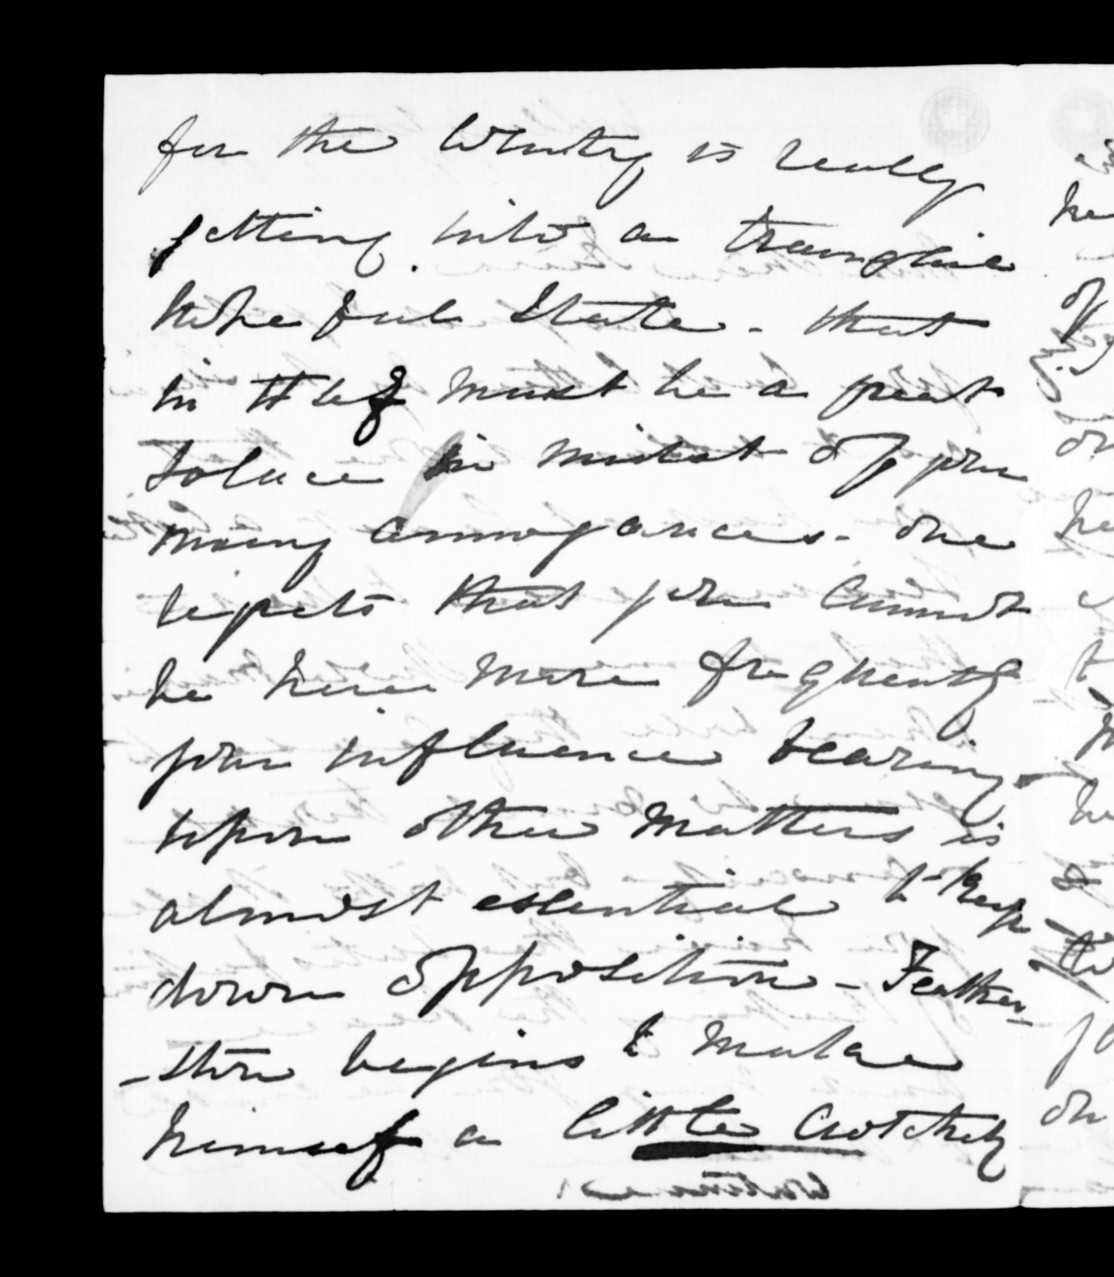 for the Country is really
getting into a tranquil
hopeful State - that
in itself must be a great
Solace in midst of your
many annoyances - One
regrets that you cannot
be here more frequently
your influence bearing
upon other matters is
almost essential to keep
down opposition - Feather
-ston begins to make
himself a little Crotchety